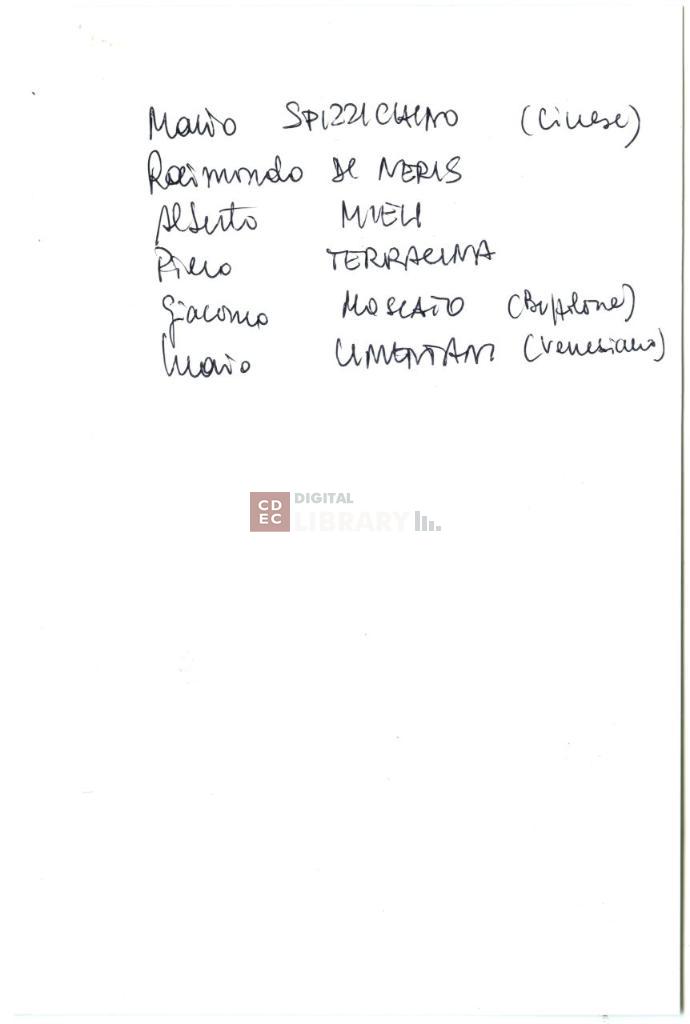 Mario SPIZZICHINO (Cinese)
Raimondo Di NERIS
Alberto MIELI
Piero TERRACINA
Giacomo MOSCATO
Mario LIMENTANI (Veneziano)
CDEC DIGITAL LIBRARY